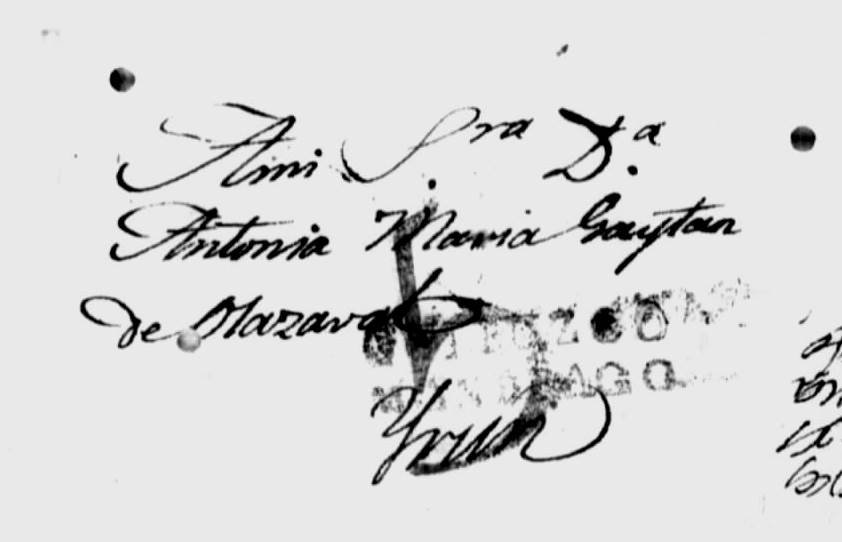 A mi S.ra D.a
Antonia Maria Gaytan
de Olazaval
Yrun